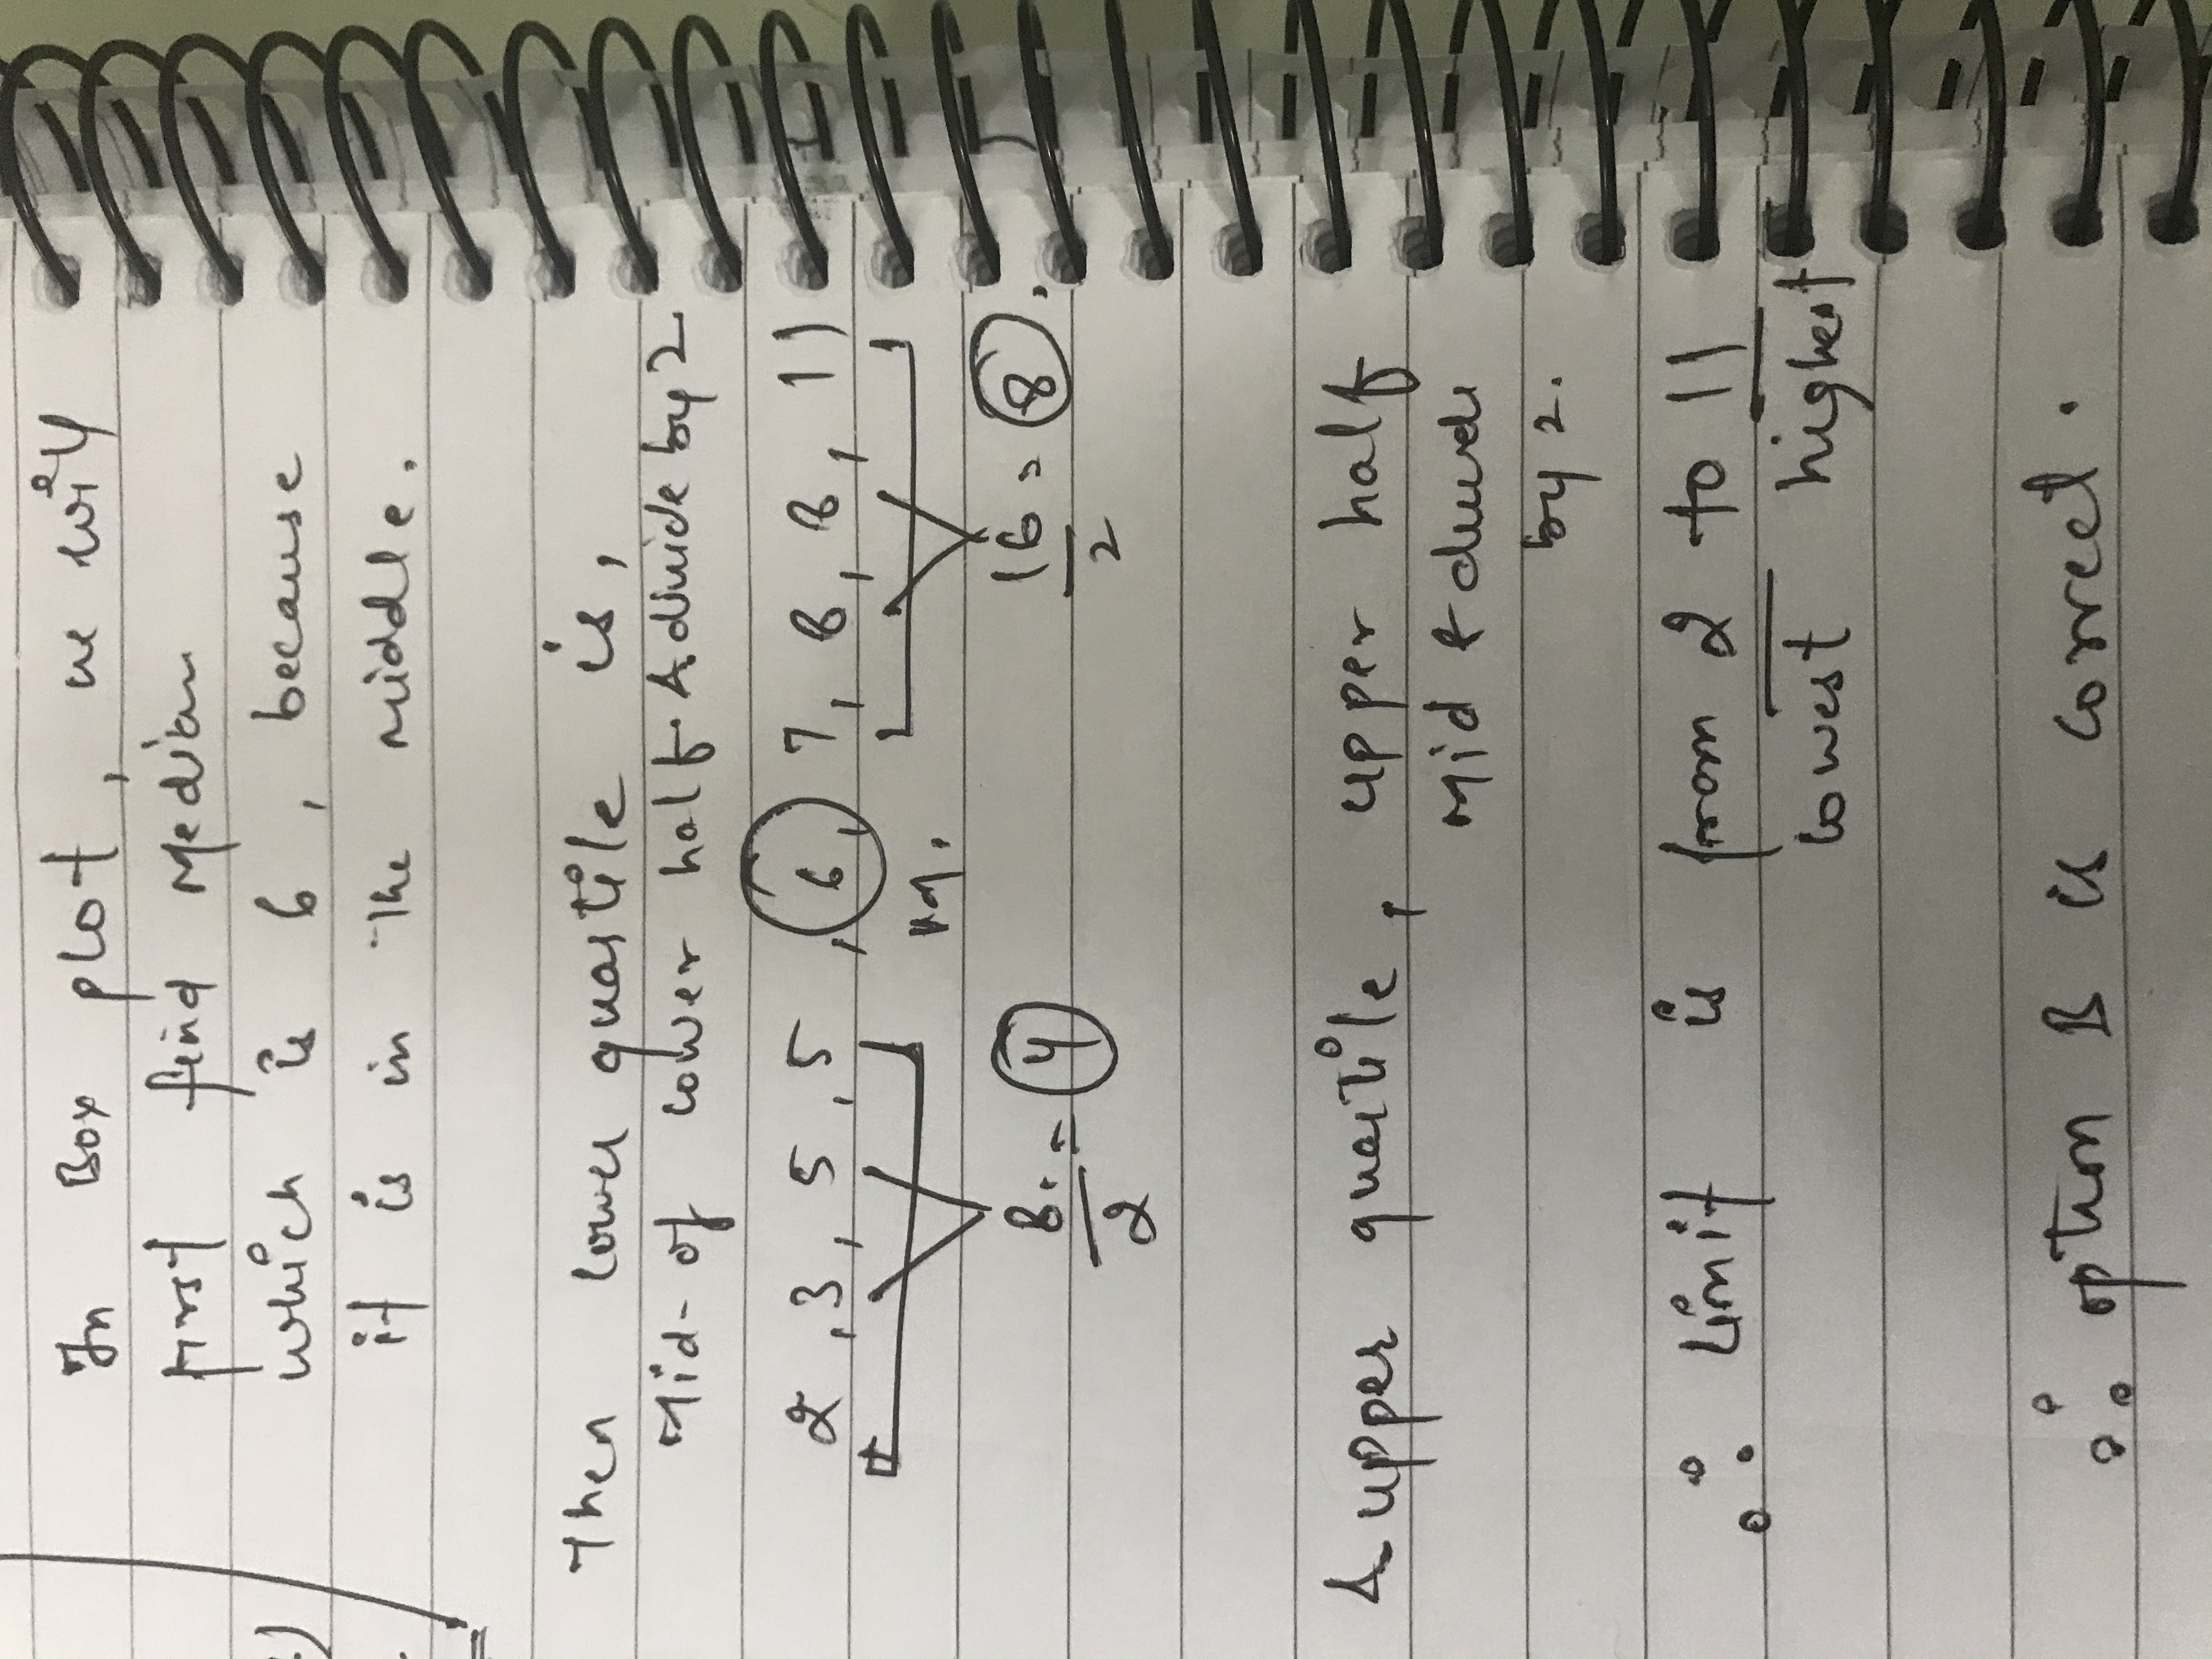 In Box plot, we will
first find Median
which is 6, because
it is in the middle.
Then lower quartile is,
Mid-of lower half & divide by 2
2, 3, 5, 5, 6, 7, 8, 8, 11
8/2 = 4
16/2 = 8.
& upper quartile, upper half
Mid & divide
by 2.
∴ Limit is from 2 to 11
lowest highest
∴ option B is correct.